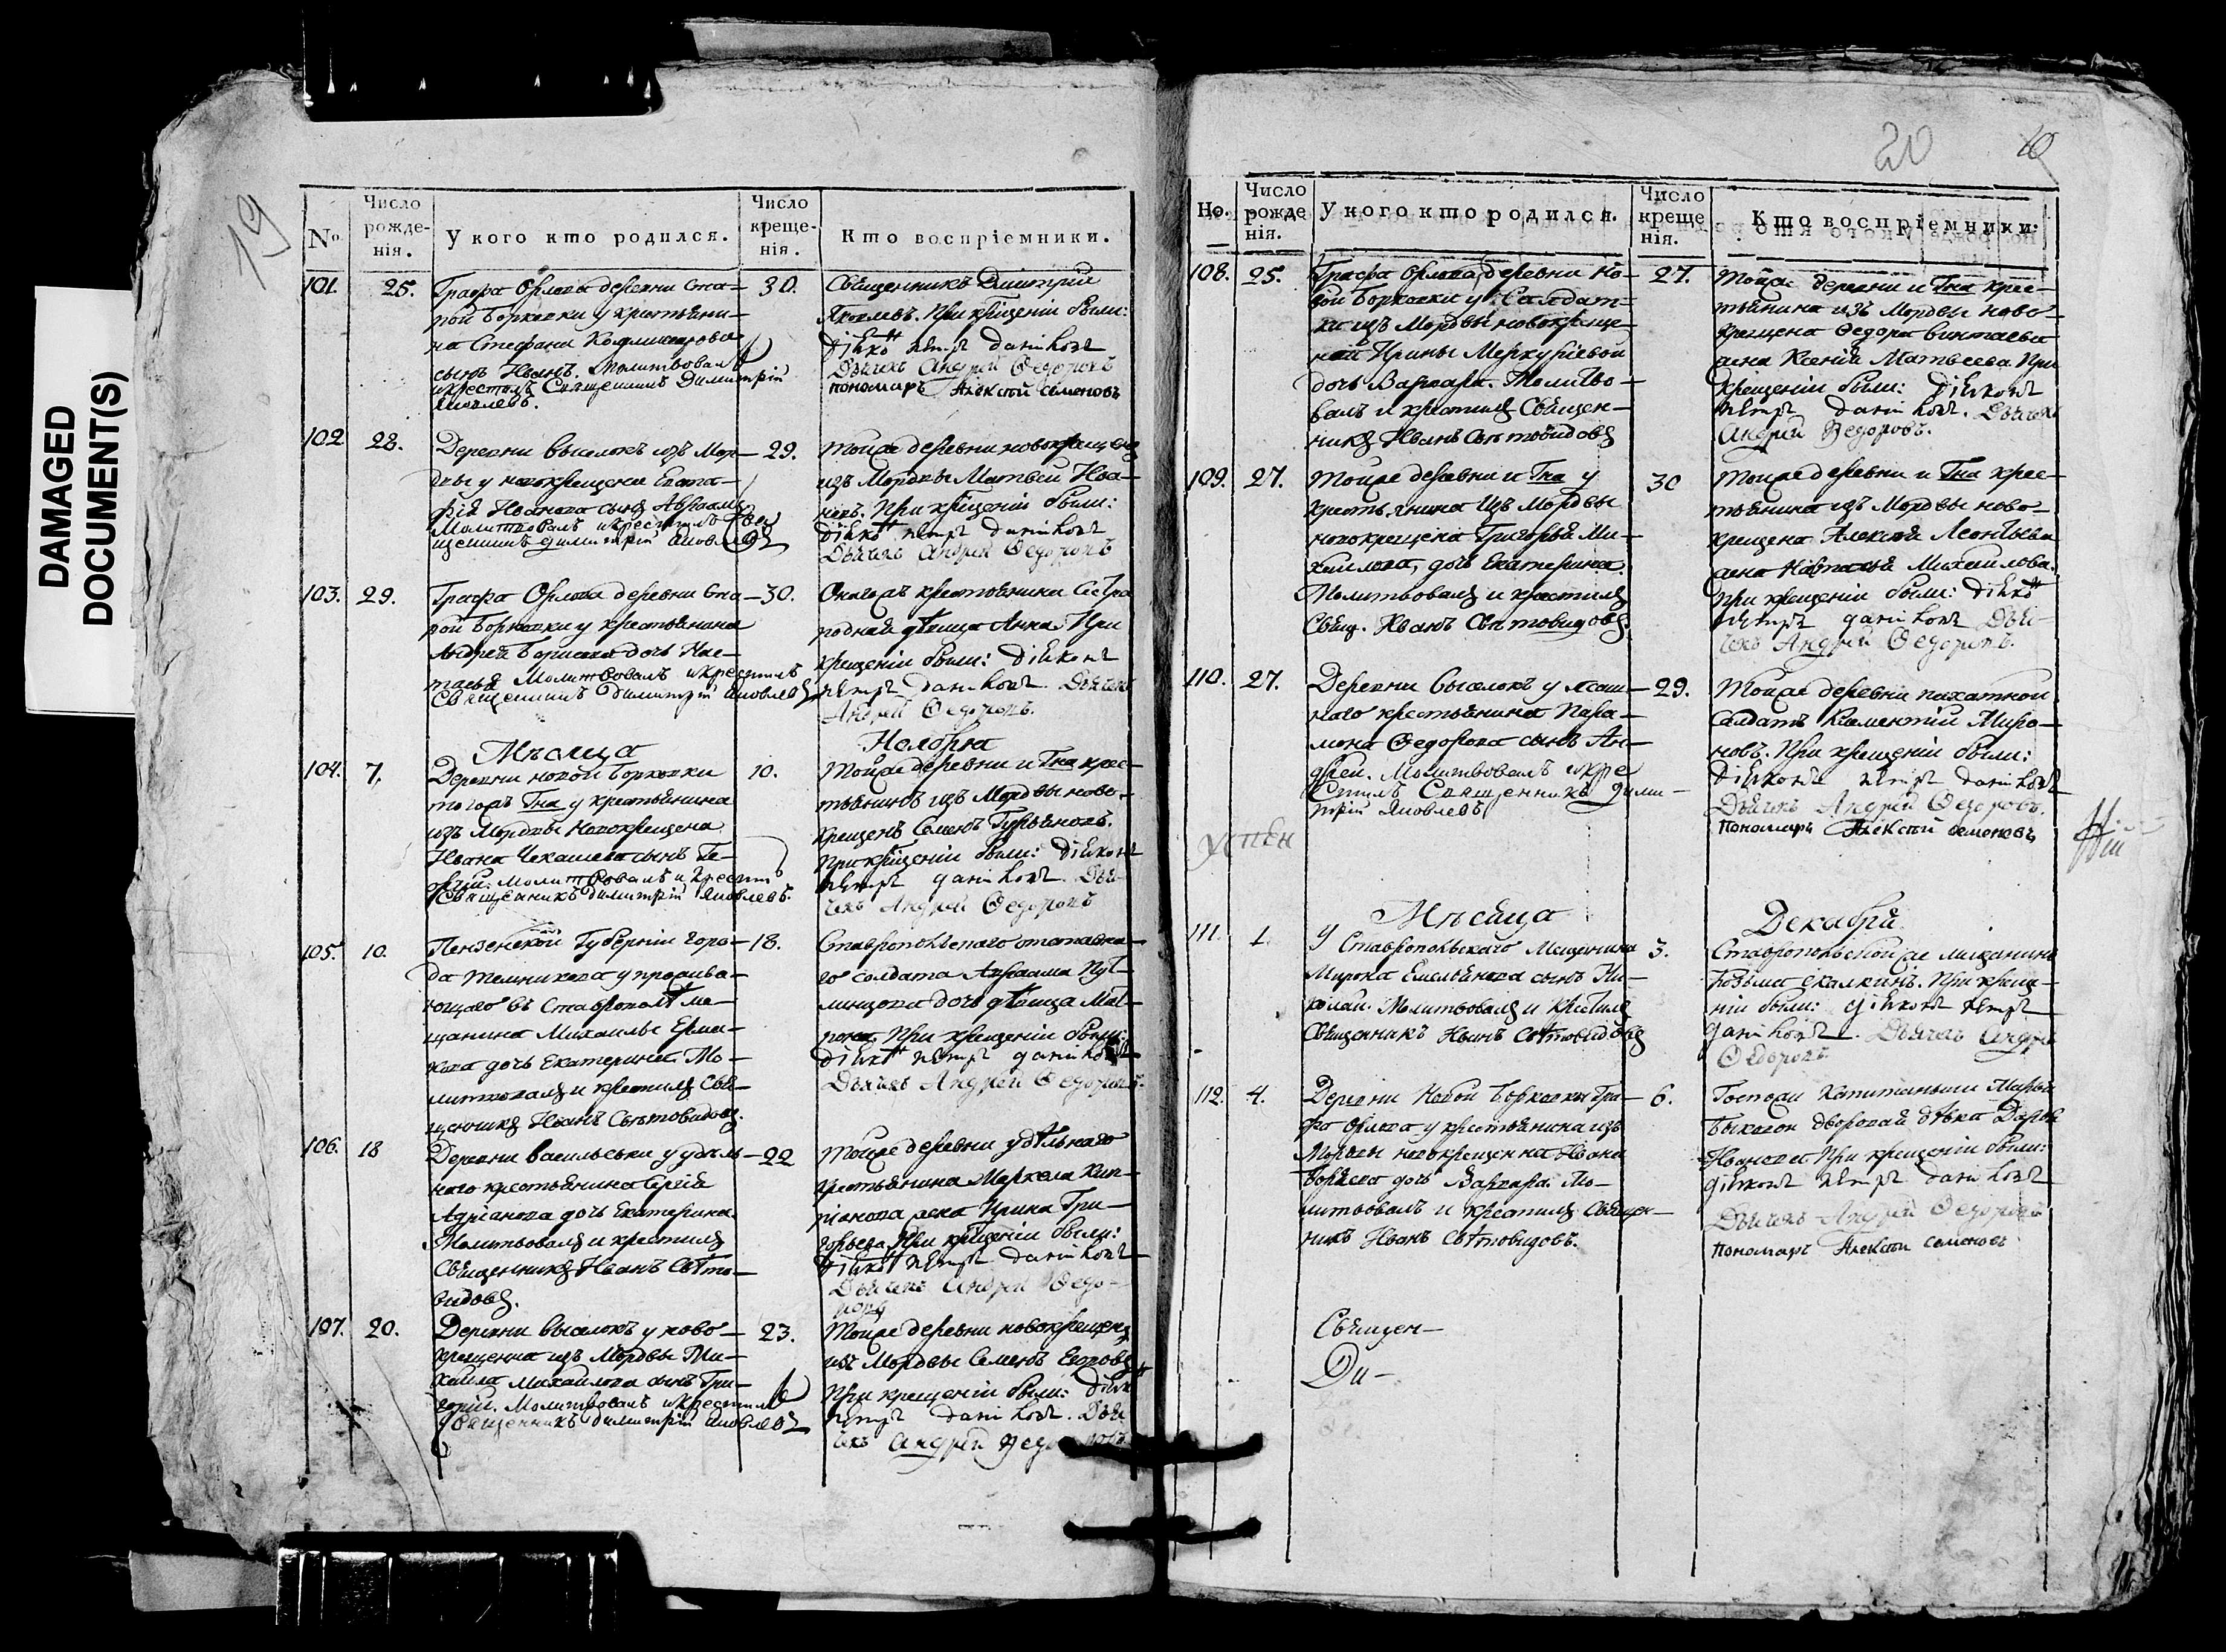 DAMAGED
DOCUMENT(S)
19
№
Число рожде-нія.
У кого кто родился.
Число креще-нія.
Кто воспріемники.
101.
25.
Графа Орлова деревни Ста-
рой Борковки у крестьяни-
на Стефана
сынъ Иванъ. Молитвовалъ
и крестилъ Священникъ Димитрій
Яковлевъ.
30.
Священникъ Димитрій
Яковлевъ. При крещеніи были:
діяконъ Петръ
Дьячекъ Андрей Ѳедоровъ
пономарь Алексѣй Семеновъ
102
28.
Деревни выселокъ изъ Мор-
двы у новокрещена
Иванова сынъ Авраамъ
Молитвовалъ и крестилъ Свя
щенникъ Димитрій Яковлевъ
29.
Тойже деревни новокрещенъ
изъ Мордвы Матвей Ива-
новъ. При крещеніи были:
діяконъ Петръ
Дьячекъ Андрей Ѳедоровъ
103.
29.
Графа Орлова деревни Ста-
рой Борковки у крестьянина
Андрея Борисова дочь Нас-
тасья Молитвовалъ и крестилъ
Священникъ Димитрій Яковлевъ
30.
Онагожъ крестьянина сестра
родная дѣвица Анна. При
крещеніи были: діяконъ
Петръ Дьячекъ
Андрей Ѳедоровъ.
Мѣсяца
Ноября
104.
7.
Деревни новой Борковки
тогожъ Гна у крестьянина
изъ Мордвы Новокрещена
Ивана Чекашева сынъ Ге-
оргій. Молитвовалъ и крестилъ
Священникъ Димитрій Яковлевъ.
10.
Тойже деревни и Гна крес-
тьянинъ изъ Мордвы ново-
крещенъ Семенъ Гурьяновъ.
При крещеніи были: діяконъ
Петръ Дья-
чекъ Андрей Ѳедоровъ
105.
10.
Пензенской Губерніи горо-
да Темникова у прожива-
ющаго въ Ставрополѣ ме-
щанина Михаилы Ерма-
кова дочь Екатерина. Мо-
литвовалъ и крестилъ Свя-
щенникъ Иванъ Свѣтовидовъ.
18.
Ставропольскаго отставна-
го солдата Авраама
дочь дѣвица
При крещеніи были:
діяконъ Петръ
Дьячекъ Андрей Ѳедоровъ.
106.
18
Деревни васильевки у удѣль-
наго крестьянина Сергія
Адріанова дочь Екатерина.
Молитвовалъ и крестилъ
Священникъ Иванъ Свѣто-
видовъ.
22
Тойже деревни удѣльнаго
крестьянина Маркела Кип-
ріанова жена Ирина Гри-
горьева. При крещеніи были:
діяконъ Петръ
Дьячекъ Андрей Ѳедо-
ровъ
107.
20.
Деревни выселокъ у ново-
крещенна изъ Мордвы Ми-
хаила Михаилова сынъ Гри-
горій. Молитвовалъ и крестилъ
Священникъ Димитрій Яковлевъ
23.
Тойже деревни новокрещенъ
изъ Мордвы Семенъ Егоровъ
При крещеніи были: діяконъ
Петръ Дьяч
екъ Андрей Ѳедоровъ.
20
20
Но.
Число рожде нія.
У кого кто родился.
Число креще нія.
Кто воспріемники.
108.
25.
Графа Орлова, деревни Но-
вой Борковки у Салдат-
ки изъ Мордвы новокреще-
ной Ирины Меркуріевой
дочь Варвара. Молитво-
валъ и крестилъ Священ-
никъ Иванъ Свѣтовидовъ
27.
Тойже деревни и Гна крес-
тьянина изъ Мордвы ново-
крещена Ѳедора
жена Ксенія Матвеева. При
крещеніи были: діяконъ
Петръ Дьячекъ
Андрей Ѳедоровъ.
109.
27.
Тойже деревни и Гна у
крестьянина Изъ Мордвы
новокрещена Григорья Ми-
хаилова, дочь Екатерина.
Молитвовалъ и крестилъ
Свящ. Иванъ Свѣтовидовъ.
30
Тойже деревни и Гна крес-
тьянина изъ Мордвы ново-
крещена Алексѣя Леонтьева
жена Михаилова.
При крещеніи были: діяконъ
Петръ Дья-
чекъ Андрей Ѳедоровъ.
110.
27.
Деревни выселокъ у
наго крестьянина Пара-
мона Ѳедорова сынъ Ан-
дрей. Молитвовалъ и кре
стилъ Священникъ Дими-
трій Яковлевъ
29.
Тойже деревни пахатной
Салдатъ Климентій Миро-
новъ. При крещеніи были:
діяконъ Петръ
Дьячекъ Андрей Ѳедоровъ.
пономарь Алексѣй Семеновъ
Мѣсяца
Декабря
111.
1.
У Ставропольскаго Мещанина
Мирона Емельянова сынъ Ни-
колай. Молитвовалъ и крестилъ
Священникъ Иванъ Свѣтовидовъ
3.
Ставропольской же мещанинъ
Козьма Скалкинъ. При креще-
ніи были: діяконъ Петръ
Дьячекъ Андрей
Ѳедоровъ.
112.
4.
Деревни Новой Борковки Гра-
фа Орлова у крестьянина изъ
Мордвы новокрещенна Ивана
дочь Варвара. Мо-
литвовалъ и крестилъ Священ-
никъ Иванъ Свѣтовидовъ.
6.
Госпожи Капитанши Марьи
Быковой дворовая дѣвка Дарья
Иванова При крещеніи были:
діяконъ Петръ
Дьячекъ Андрей Ѳедоровъ
пономарь Алексѣй Семеновъ
Священ-
Ди-